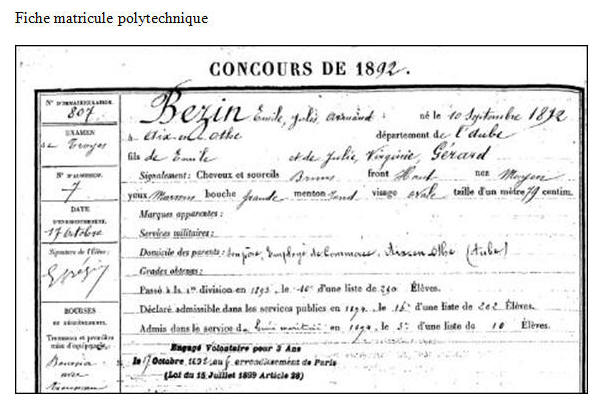 Fiche matricule polytechnique
CONCOURS DE 1892.
N° D'IMMATRICULATION.
807
EXAMEN
de Troyes
N° D'ADMISSION.
7
DATE
D'ENREGISTREMENT.
17 Octobre
Signature de l'Élève:
BOURSES
ET
Trousseau et première
mise d'équipement.
Boursier
avec
Trousseau
Bezin Emile, Jules, Armand né le 10 Septembre 1872
à Aix en Othe département de l'Aube
fils de Emile et de Julie, Virginie, Gérard
Signalement: Cheveux et sourcils Bruns front Haut nez Moyen
yeux Marrons bouche grande menton rond visage ovale taille d'un mètre 79 centim.
Marques apparentes:
Services militaires:
Domicile des parents: son père, Employé de Commerce, Aix en Othe (Aube)
Grades obtenus:
Passé à la 1re division en 1893 le 10e d'une liste de 240 Élèves.
Déclaré admissible dans les services publics en 1894, le 16e d'une liste de 202 Élèves.
Admis dans le service du Génie maritime en 1894, le 5e d'une liste de 10 Élèves.
Engagé Volontaire pour 3 Ans
le 17 Octobre 1892 au arrondissement de Paris
(Loi du 15 Juillet 1889 Article 28)